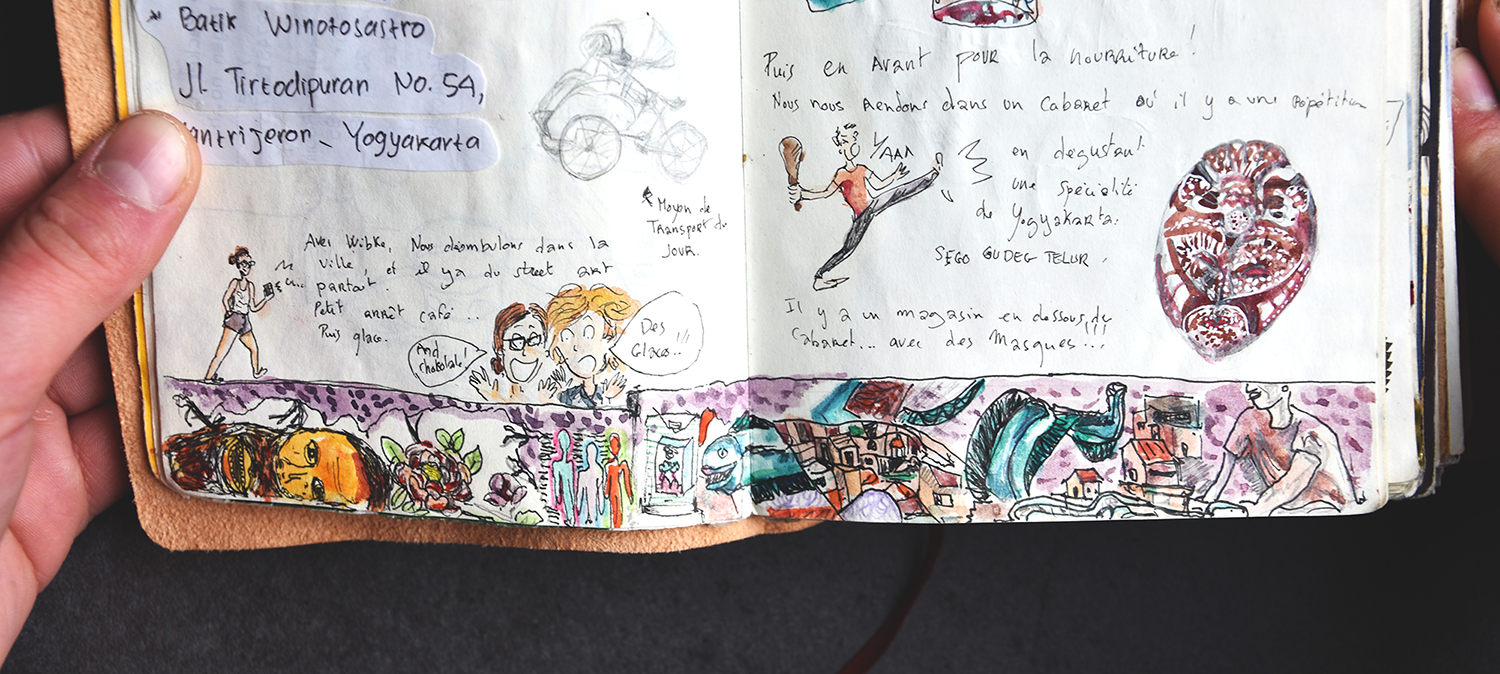 * Batik Winotosastro
Jl. Tirtodipuran No. 54,
antrijeron - Yogyakarta
Moyen de
Transport du
JOUR.
Avec Wibke, Nous déambulons dans la
ville, et il y a du street art
partout.
Petit arrêt café...
Puis glace.
And
chokolate!
Des
Glaces..!!!
Puis en Avant pour la nourriture!
Nous nous Rendons dans un Cabaret où il y a une Répétition
YAAA
en dégustant
une spécialité
de Yogyakarta.
SEGO GUDEG TELUR.
Il y a un magasin en dessous du
Cabaret... avec des Masques!!!